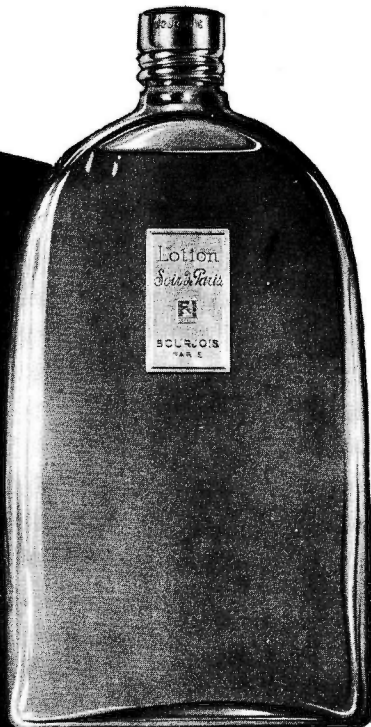 Lotion
Soir de Paris
BOURJOIS
PARIS